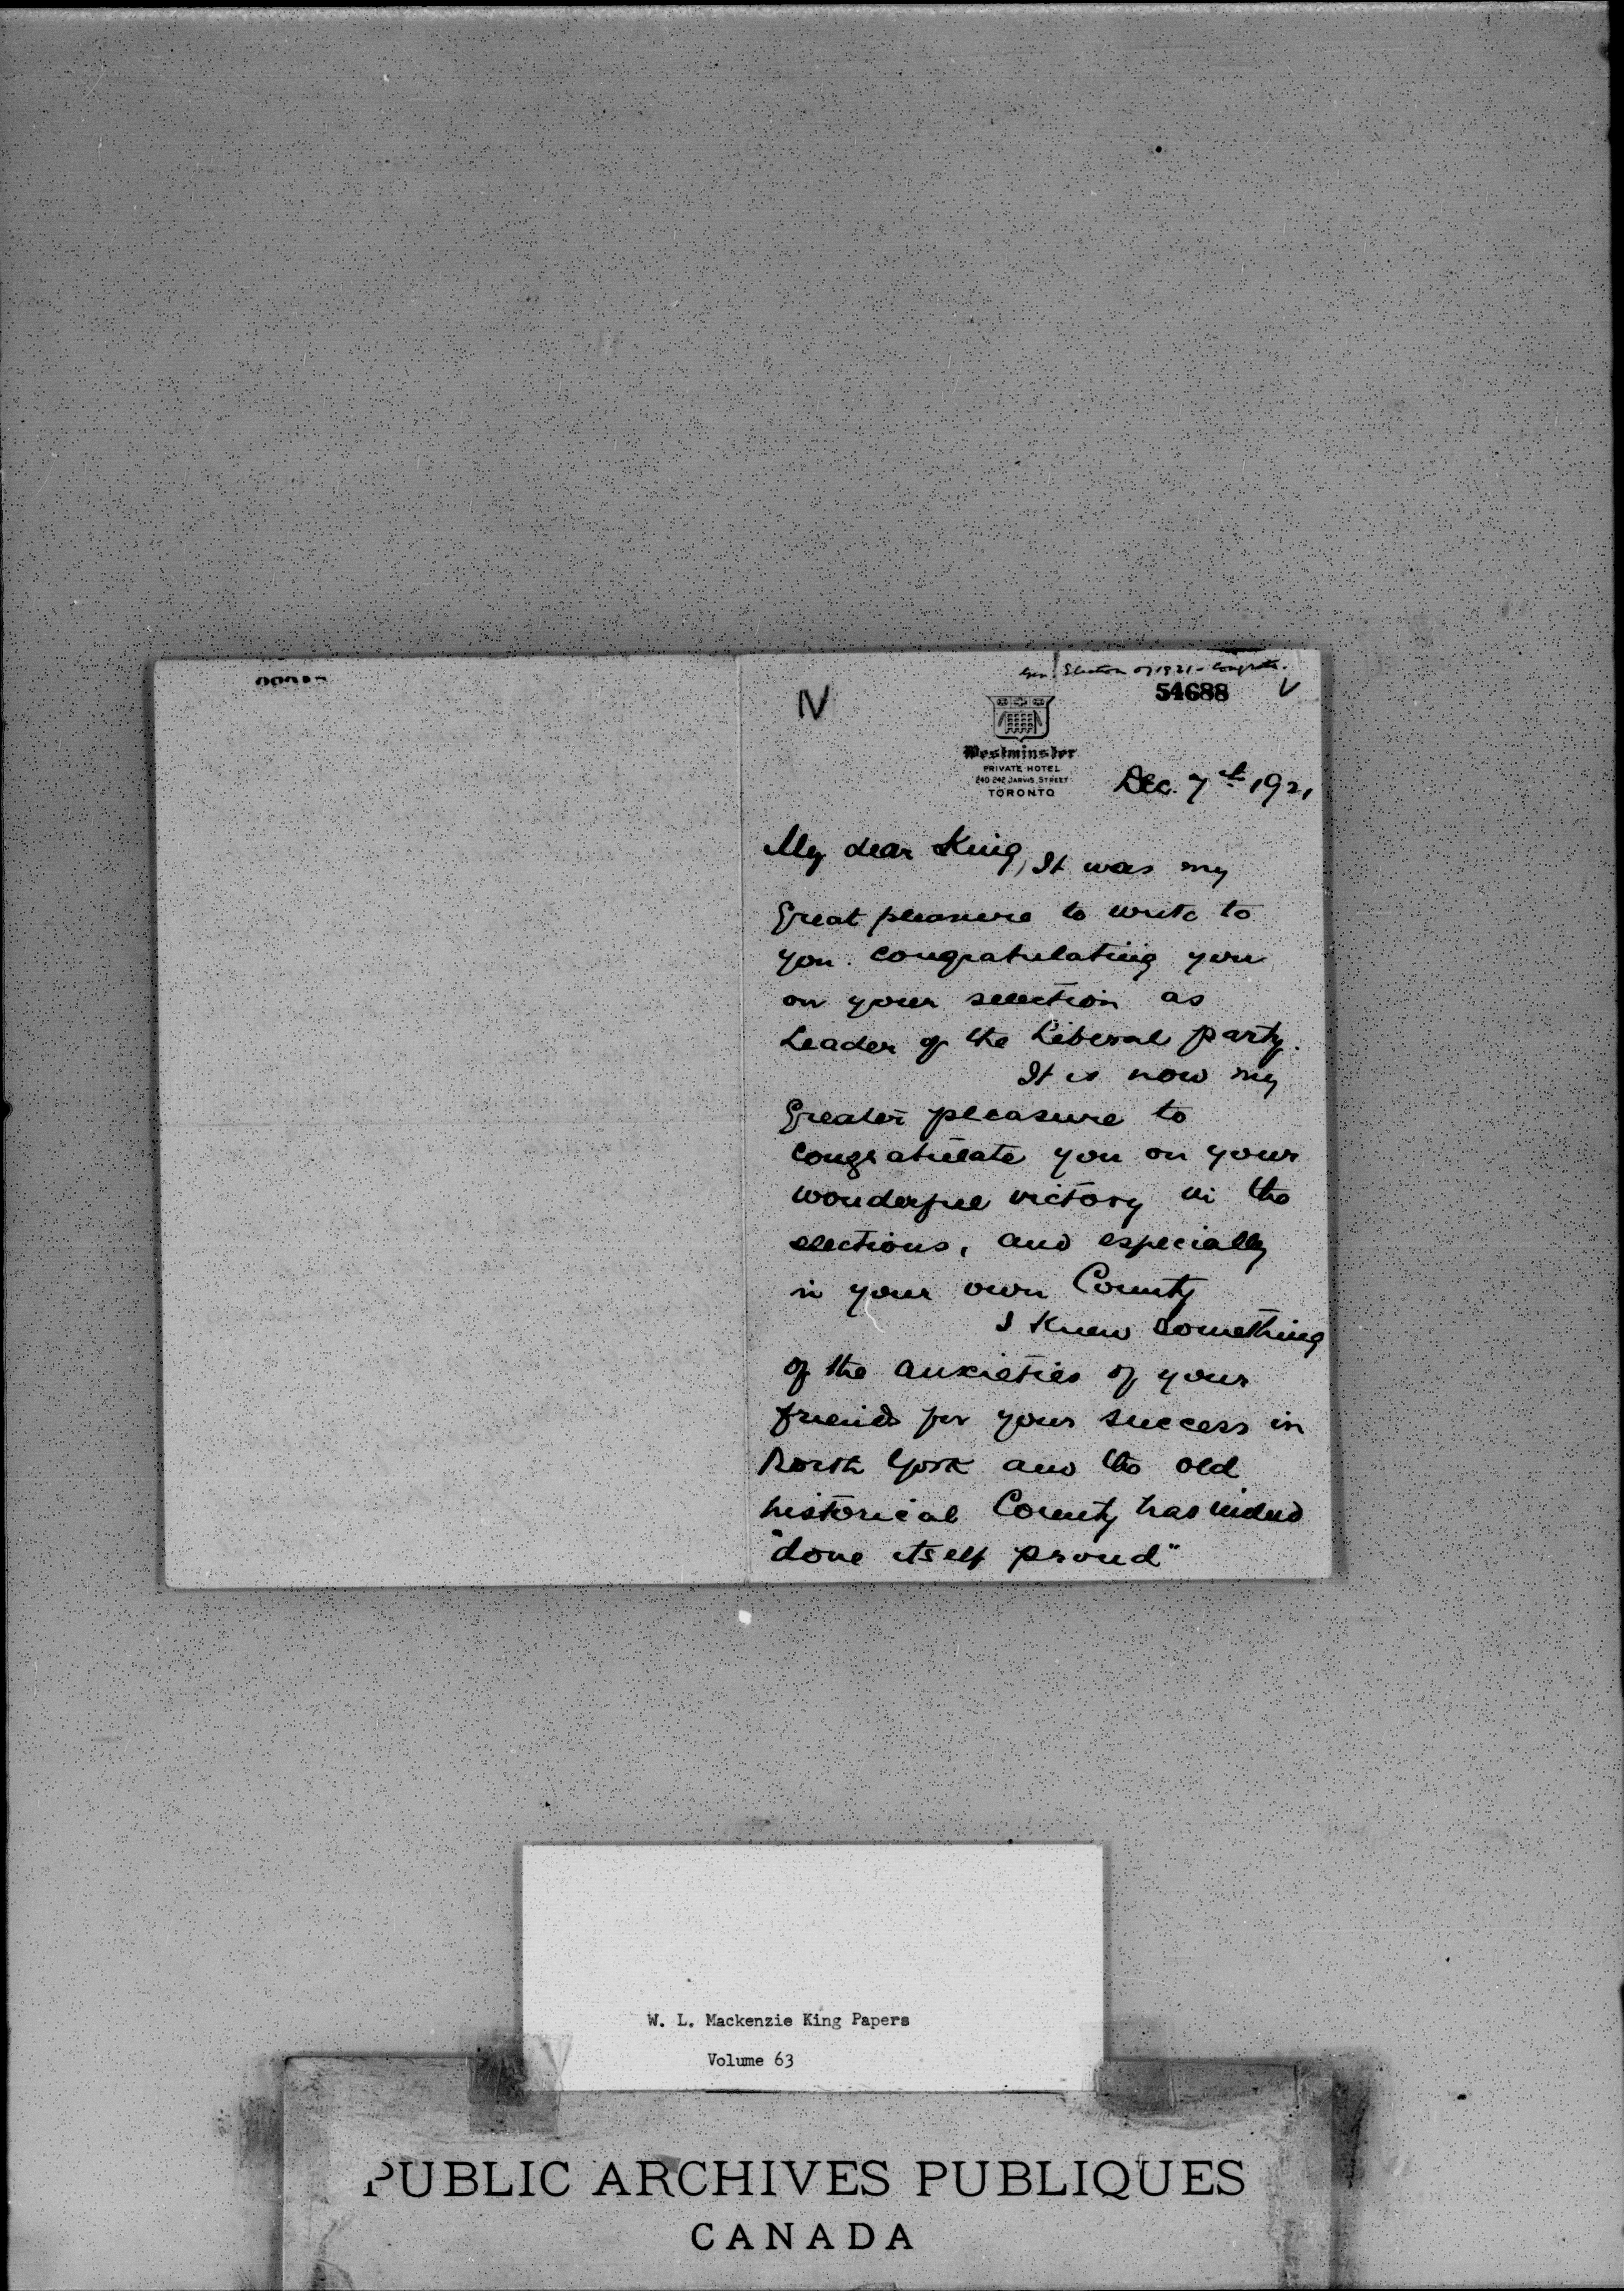 Gen. Election of 1921 - Congrats.
54688
IV
Westminster
PRIVATE HOTEL
240-242 JARVIS STREET
TORONTO
Dec. 7th 1921
My dear King, It was my
great pleasure to write to
you congratulating you
on your selection as
Leader of the Liberal party.
It is now my
Greater pleasure to
congratulate you on your
wonderful victory in the
elections, and especially
in your own County
I knew something
of the anxieties of your
friends for your success in
North York and the old
historical County has indeed
"done itself proud"
W. L. Mackenzie King Papers
Volume 63
PUBLIC ARCHIVES PUBLIQUES
CANADA